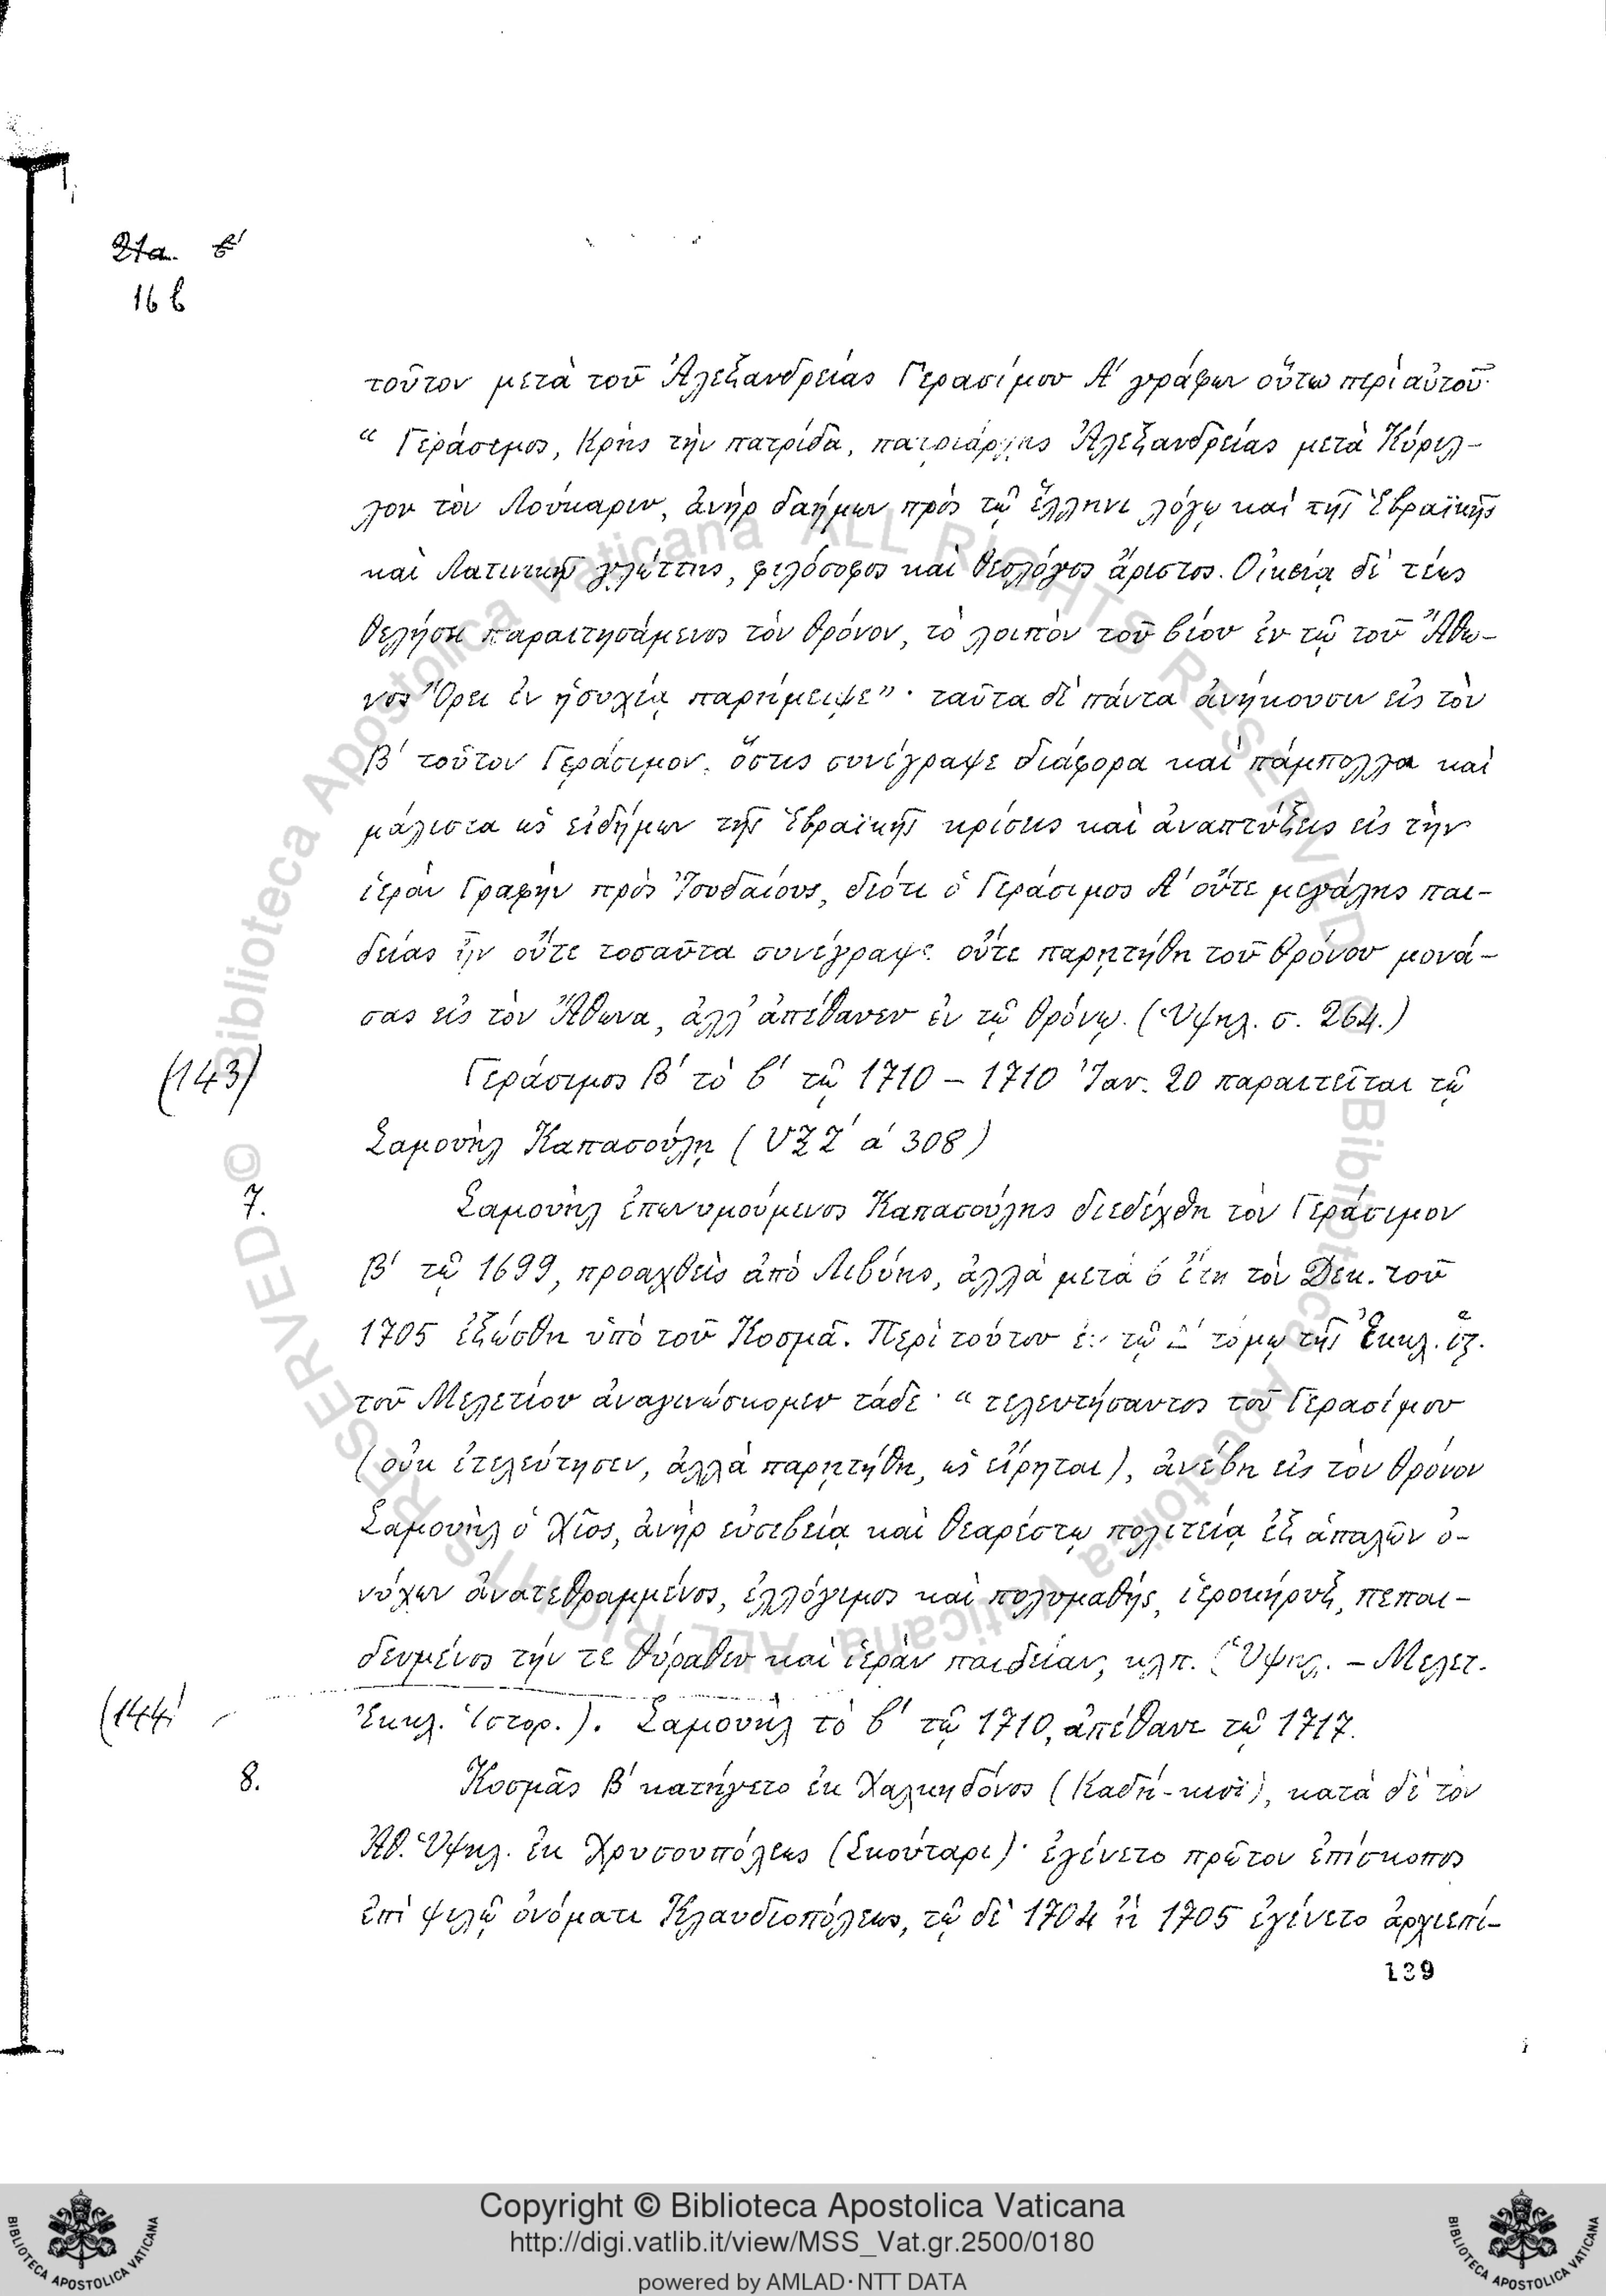 21a. β'
16 β
τοῦτον μετὰ τοῦ Ἀλεξανδρείας Γερασίμου Α' γράφων οὕτω περὶ αὐτοῦ·
“ Γεράσιμος, Κρὴς τὴν πατρίδα, πατριάρχης Ἀλεξανδρείας μετὰ Κύριλ-
λον τὸν Λούκαριν, ἀνὴρ δαήμων πρὸς τῷ ἕλληνι λόγῳ καὶ τῆς Ἑβραϊκῆς
καὶ Λατινικῆς γλώττης, φιλόσοφος καὶ θεολόγος ἄριστος. Οἰκείᾳ δὲ τέως
θελήσει παραιτησάμενος τὸν θρόνον, τὸ λοιπὸν τοῦ βίου ἐν τῷ τοῦ Ἄθω-
νος Ὄρει ἐν ἡσυχίᾳ παρήμειψε”· ταῦτα δὲ πάντα ἀνήκουσιν εἰς τὸν
Β' τοῦτον Γεράσιμον, ὅστις συνέγραψε διάφορα καὶ πάμπολλα καὶ
μάλιστα ὡς εἰδήμων τῆς Ἑβραϊκῆς κρίσεις καὶ ἀναπτύξεις εἰς τὴν
ἱερὰν Γραφὴν πρὸς Ἰουδαίους, διότι ὁ Γεράσιμος Α' οὔτε μεγάλης παι-
δείας ἦν οὔτε τοσαῦτα συνέγραψε οὔτε παρῃτήθη τοῦ θρόνου μονά-
σας εἰς τὸν Ἄθωνα, ἀλλ' ἀπέθανεν ἐν τῷ θρόνῳ. (Ὑψηλ. σ. 264.)
(143) Γεράσιμος Β' τὸ β' τῷ 1710 – 1710 Ἰαν. 20 παραιτεῖται τῷ
Σαμουὴλ Καπασούλῃ ( α' 308)
7. Σαμουὴλ ἐπωνυμούμενος Καπασούλης διεδέχθη τὸν Γεράσιμον
Β' τῷ 1699, προαχθεὶς ἀπὸ Λιβύης, ἀλλὰ μετὰ 6 ἔτη τὸν Δεκ. τοῦ
1705 ἐξώσθη ὑπὸ τοῦ Κοσμᾶ. Περὶ τούτου ἐν τῷ Δ' τόμῳ τῆς Ἐκκλ. ἱς.
τοῦ Μελετίου ἀναγινώσκομεν τάδε· “ τελευτήσαντος τοῦ Γερασίμου
(οὐκ ἐτελεύτησεν, ἀλλὰ παρῃτήθη, ὡς εἴρηται), ἀνέβη εἰς τὸν θρόνον
Σαμουὴλ ὁ Χῖος, ἀνὴρ εὐσεβείᾳ καὶ θεαρέστῳ πολιτείᾳ ἐξ ἁπαλῶν ὀ-
νύχων ἀνατεθραμμένος, ἐλλόγιμος καὶ πολυμαθής, ἱεροκήρυξ, πεπαι-
δευμένος τήν τε θύραθεν καὶ ἱερὰν παιδείαν, κλπ. (Ὑψηλ. – Μελετ.
(144) Ἐκκλ. Ἱστορ.). Σαμουὴλ τὸ β' τῷ 1710, ἀπέθανε τῷ 1717.
8. Κοσμᾶς Β' κατήγετο ἐκ Χαλκηδόνος (Καδή-κιοϊ), κατὰ δὲ τὸν
Ἀθ. Ὑψηλ. ἐκ Χρυσουπόλεως (Σκούταρι)· ἐγένετο πρῶτον ἐπίσκοπος
ἐπὶ ψιλῷ ὀνόματι Κλαυδιοπόλεως, τῷ δὲ 1704 ἢ 1705 ἐγένετο ἀρχιεπί-
139
© Biblioteca Apostolica Vaticana ALL RIGHTS RESERVED
© Biblioteca Apostolica Vaticana ALL RIGHTS RESERVED
Copyright © Biblioteca Apostolica Vaticana
http://digi.vatlib.it/view/MSS_Vat.gr.2500/0180
powered by AMLAD·NTT DATA
BIBLIOTECA APOSTOLICA VATICANA
BIBLIOTECA APOSTOLICA VATICANA